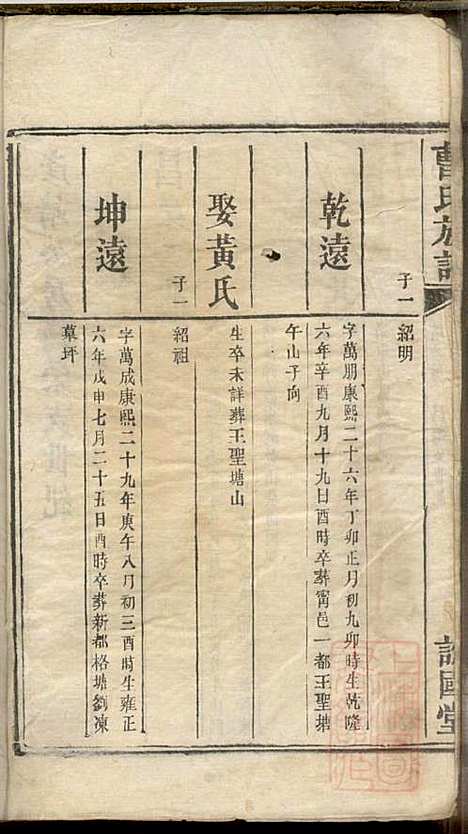 曹氏族譜
子一
紹明
乾遠
字萬朋康熙二十六年丁卯正月初九卯時生乾隆
六年辛酉九月十九日酉時卒葬甯邑一都王聖塘
午山子向
娶黃氏
生卒未詳葬王聖塘山
子一
紹祖
坤遠
字萬成康熙二十九年庚午八月初三酉時生雍正
六年戊申七月二十五日酉時卒葬新都格塘劉凍
草坪
國堂